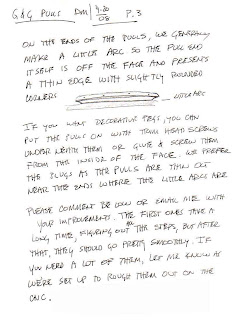 G&G PULLS DM 4-20 08 P.3
ON THE ENDS OF THE PULLS, WE GENERALLY
MAKE A LITTLE ARC SO THE PULL END
ITSELF IS OFF THE FACE AND PRESENTS
A THIN EDGE WITH SLIGHTLY ROUNDED
CORNERS
LITTLE ARC
IF YOU WANT DECORATIVE PEGS, YOU CAN
PUT THE PULLS ON WITH TRIM HEAD SCREWS
UNDER NEATH THEM OR GLUE & SCREW THEM
FROM THE INSIDE OF THE FACE. WE PREFER
THE PLUGS AS THE PULLS ARE THIN OUT
NEAR THE ENDS WHERE THE LITTLE ARCS ARE
PLEASE COMMENT BELOW OR EMAIL ME WITH
YOUR IMPROVEMENTS. THE FIRST ONES TAKE A
LONG TIME, FIGURING OUT THE STEPS, BUT AFTER
THAT, THEY SHOULD GO PRETTY SMOOTHLY. IF
YOU NEED A LOT OF THEM, LET ME KNOW AS
WE'RE SET UP TO ROUGH THEM OUT ON THE
CNC.